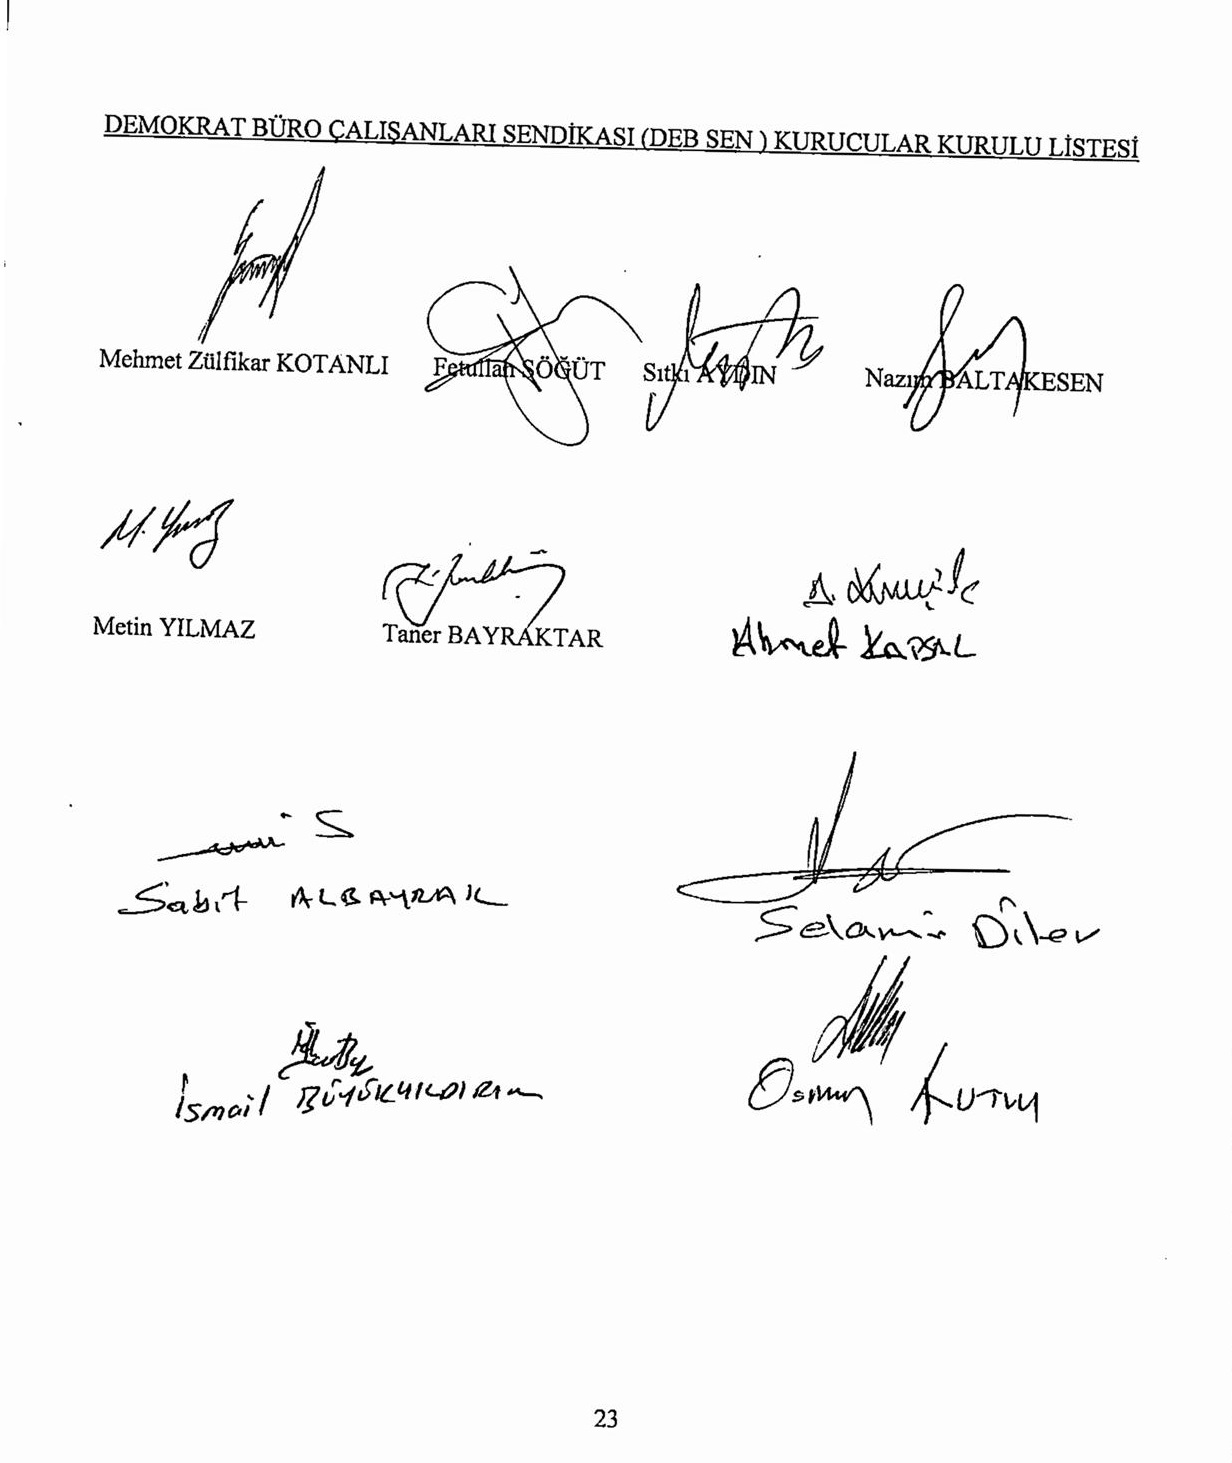 DEMOKRAT BÜRO ÇALIŞANLARI SENDİKASI (DEB SEN ) KURUCULAR KURULU LİSTESİ
Mehmet Zülfikar KOTANLI Fetullah SÖĞÜT Sıtkı AYDIN Nazım BALTAKESEN
M. Yılmaz
Metin YILMAZ Taner BAYRAKTAR Ahmet
Sabit ALBAYRAK
Selami Dilev
İsmail BÜYÜKYILDIRIM Osman KUTLU
23